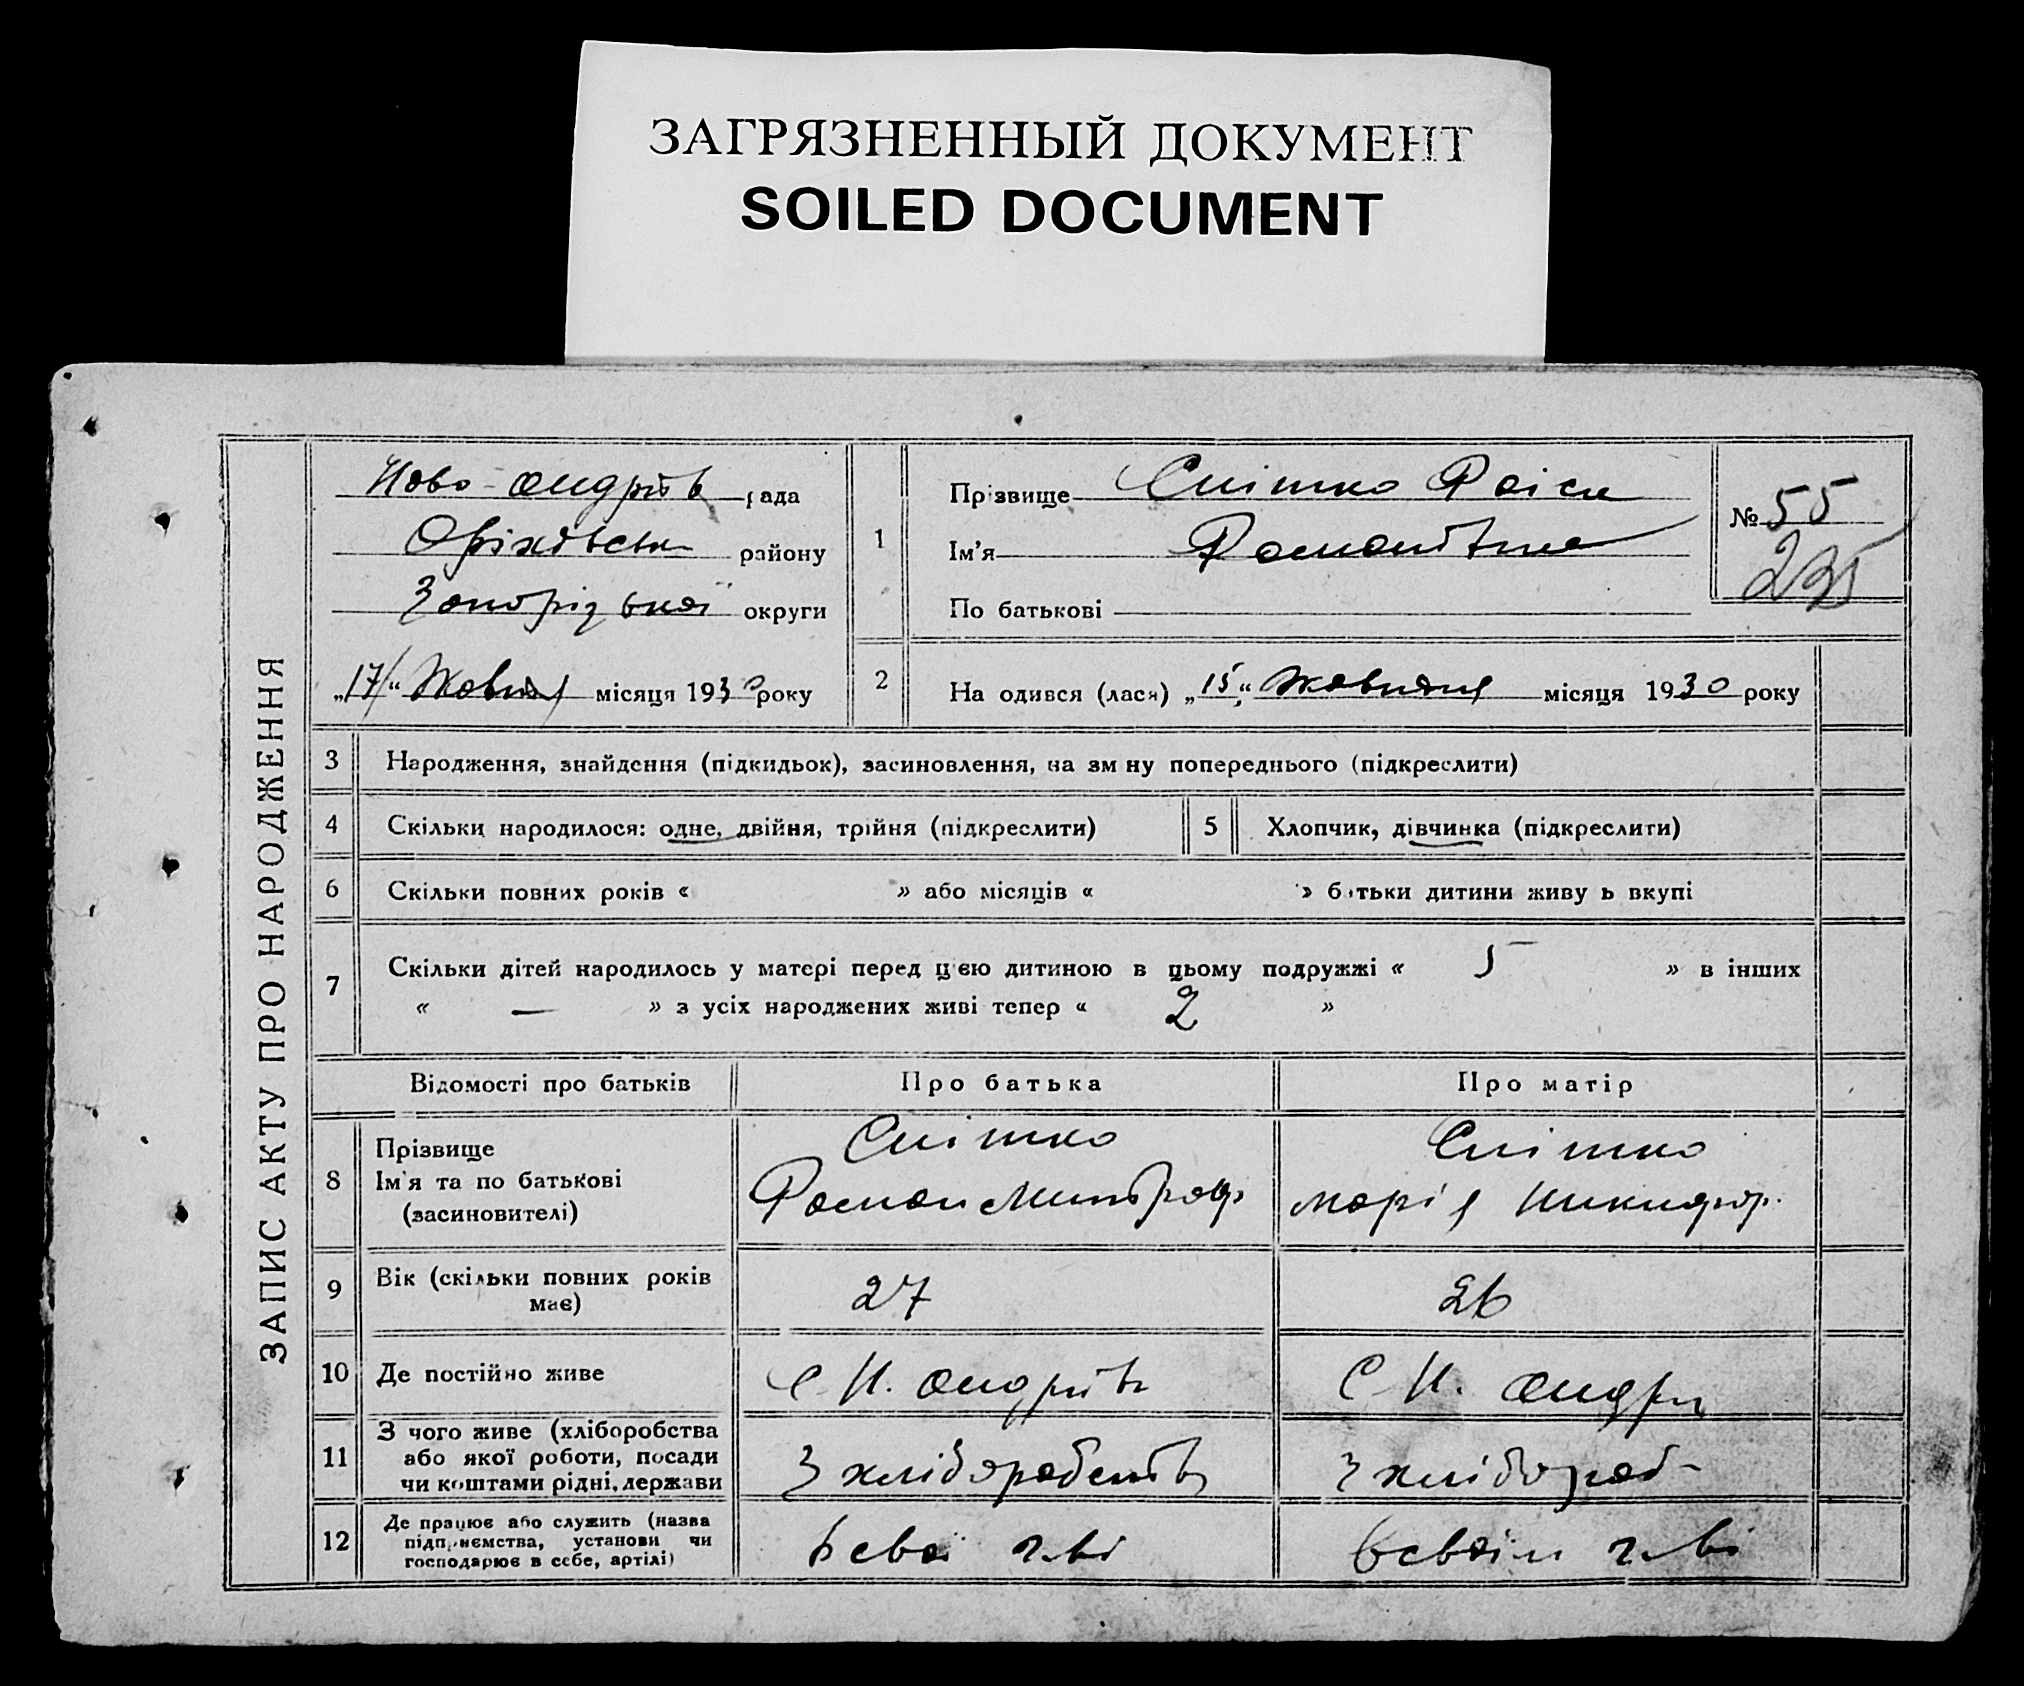 ЗАГРЯЗНЕННЫЙ ДОКУМЕНТ
SOILED DOCUMENT
ЗАПИС АКТУ ПРО НАРОДЖЕННЯ
Ново-Андріїв рада
Оріхівськ району
Запорізької округи
„17“ Жовтня місяця 1930 року
1
Прізвище Снітко Раіса
Ім'я Романівна
По батькові
№ 55
235
2 На одився (лася) „15“ Жовтня місяця 1930 року
3 Народження, знайдення (підкидьок), засиновлення, на зм ну попереднього (підкреслити)
4 Скільки народилося: одне, двійня, трійня (підкреслити) 5 Хлопчик, дівчинка (підкреслити)
6 Скільки повних років « » або місяців « » батьки дитини живу ь вкупі
7 Скільки дітей народилось у матері перед цією дитиною в цьому подружжі « 5 » в інших
« — » з усіх народжених живі тепер « 2 »
Відомості про батьків Про батька Про матір
8 Прізвище
Ім'я та по батькові
(засиновителі)
Снітко
Роман Митроф
Снітко
Марія Никифор.
9 Вік (скільки повних років
має)
27
26
10 Де постійно живе С Н. Андріїв С Н. Андрі
11 З чого живе (хліборобства
або якої роботи, посади
чи коштами рідні, держави
З хліборобств
З хлібороб
12 Де працює або служить (назва
підприємства, установи чи
господарює в себе, артілі)
В свої г-ві
В своїм г-ві